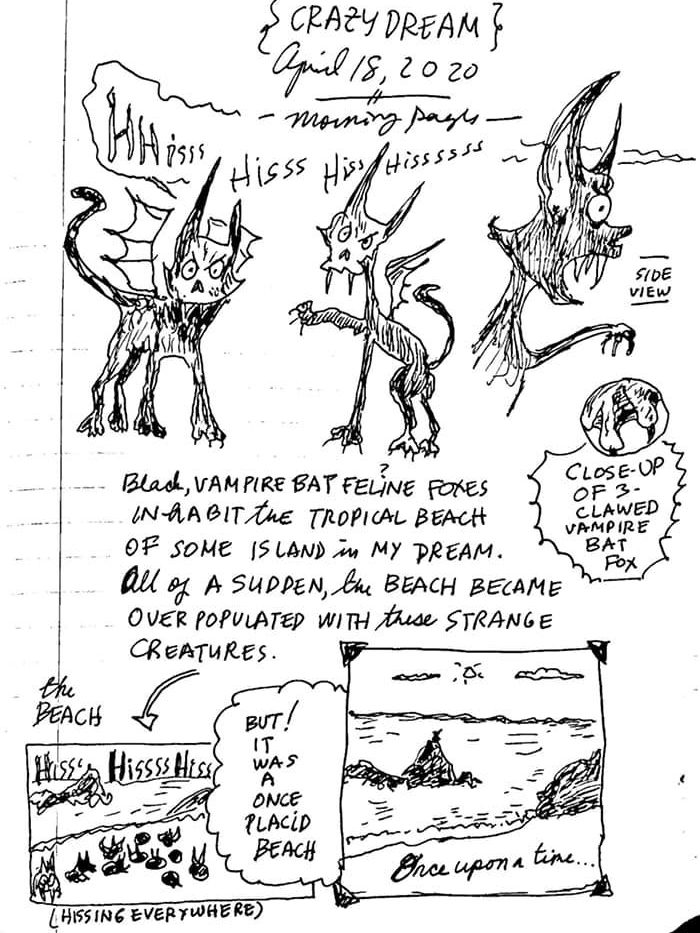 {CRAZY DREAM}
April 18, 2020
- morning pages -
HHisss
Hisss Hiss Hissssss
SIDE
VIEW
CLOSE-UP
OF 3-
CLAWED
VAMPIRE
BAT
FOX
?
Black, VAMPIRE BAT FELINE FOXES
INHABIT the TROPICAL BEACH
OF SOME ISLAND in MY DREAM.
All of A SUDDEN, the BEACH BECAME
OVERPOPULATED WITH these STRANGE
CREATURES.
the
BEACH
Hisss Hissss Hiss
(HISSING EVERYWHERE)
BUT!
IT
WAS
A
ONCE
PLACID
BEACH
Once upon a time...